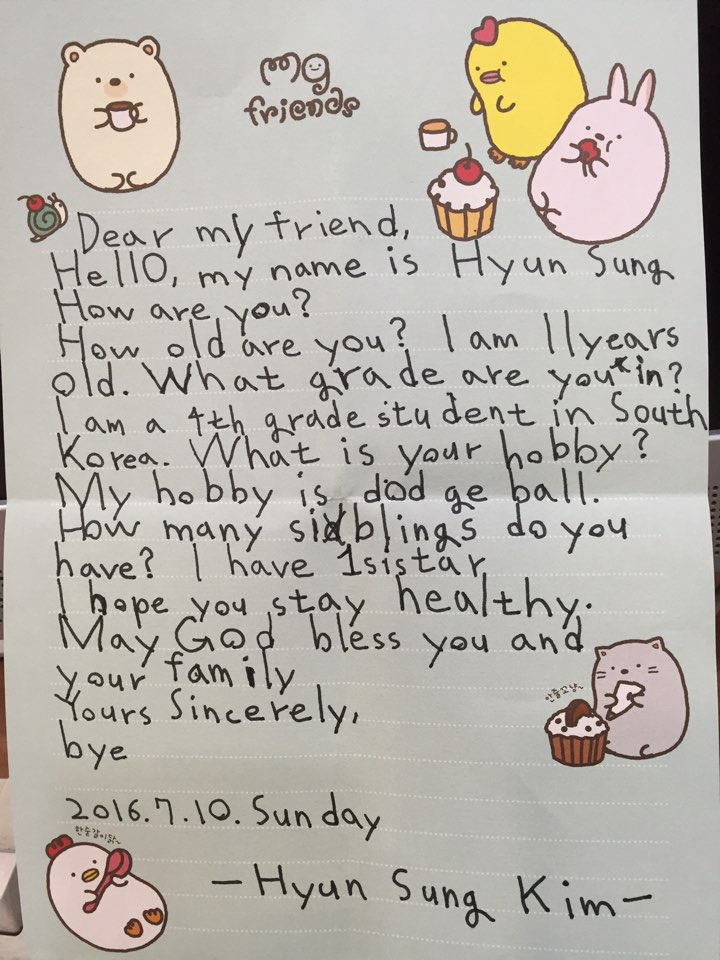 my
friends
Dear my friend,
Hello, my name is Hyun Sung
How are you?
How old are you? I am 11years
old. What grade are you*in?
I am a 4th grade student in South
Korea. What is your hobby?
My hobby is dod ge ball.
How many siblings do you
have? I have 1sistar
I hope you stay healthy.
May God bless you and
your family
Yours Sincerely,
bye
2016.7.10. Sunday
-Hyun Sung Kim-